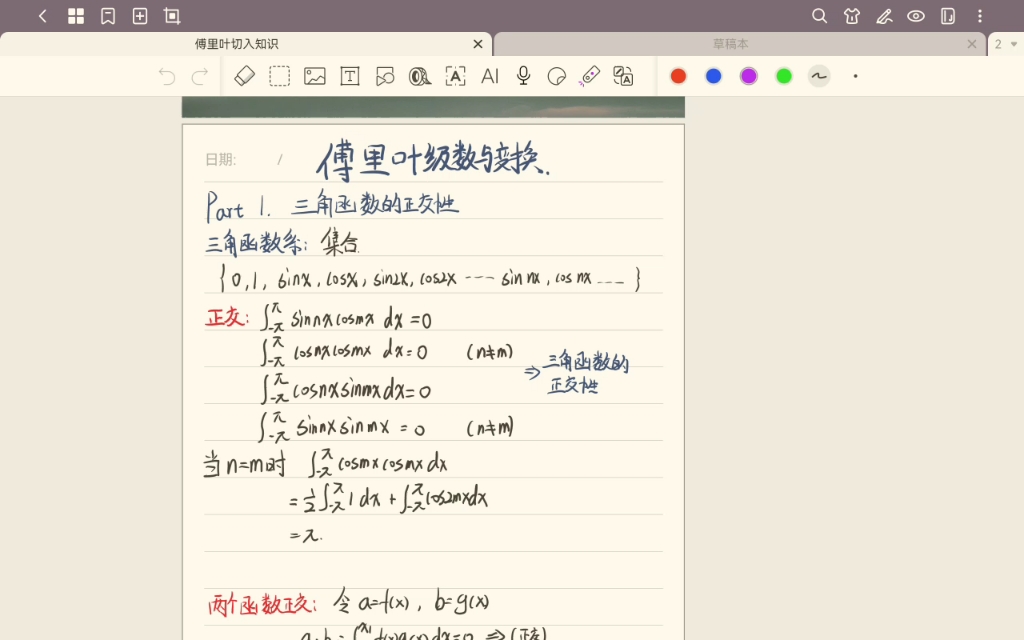 傅里叶切入知识
草稿本
2
T
A
AI
日期: /
傅里叶级数与变换.
Part 1. 三角函数的正交性
三角函数系: 集合
{0,1, sinx, cosx, sin2x, cos2x ---- sin nx, cos nx ---- }
正交: ∫_{-π}^{π} sinnxcosmx dx =0
∫_{-π}^{π} cosnxcosmx dx=0 (n≠m)
⇒ 三角函数的
正交性
∫_{-π}^{π} cosnxsinmxdx=0
∫_{-π}^{π} sinnxsinmx =0 (n≠m)
当n=m时 ∫_{-π}^{π} cosmxcosmxdx
=½∫_{-π}^{π} 1 dx + ∫_{-π}^{π} cos2mxdx
=π.
两个函数正交: 令 a=f(x), b=g(x)
a·b = ∫ f(x)g(x)dx=0 ⇒(正交)